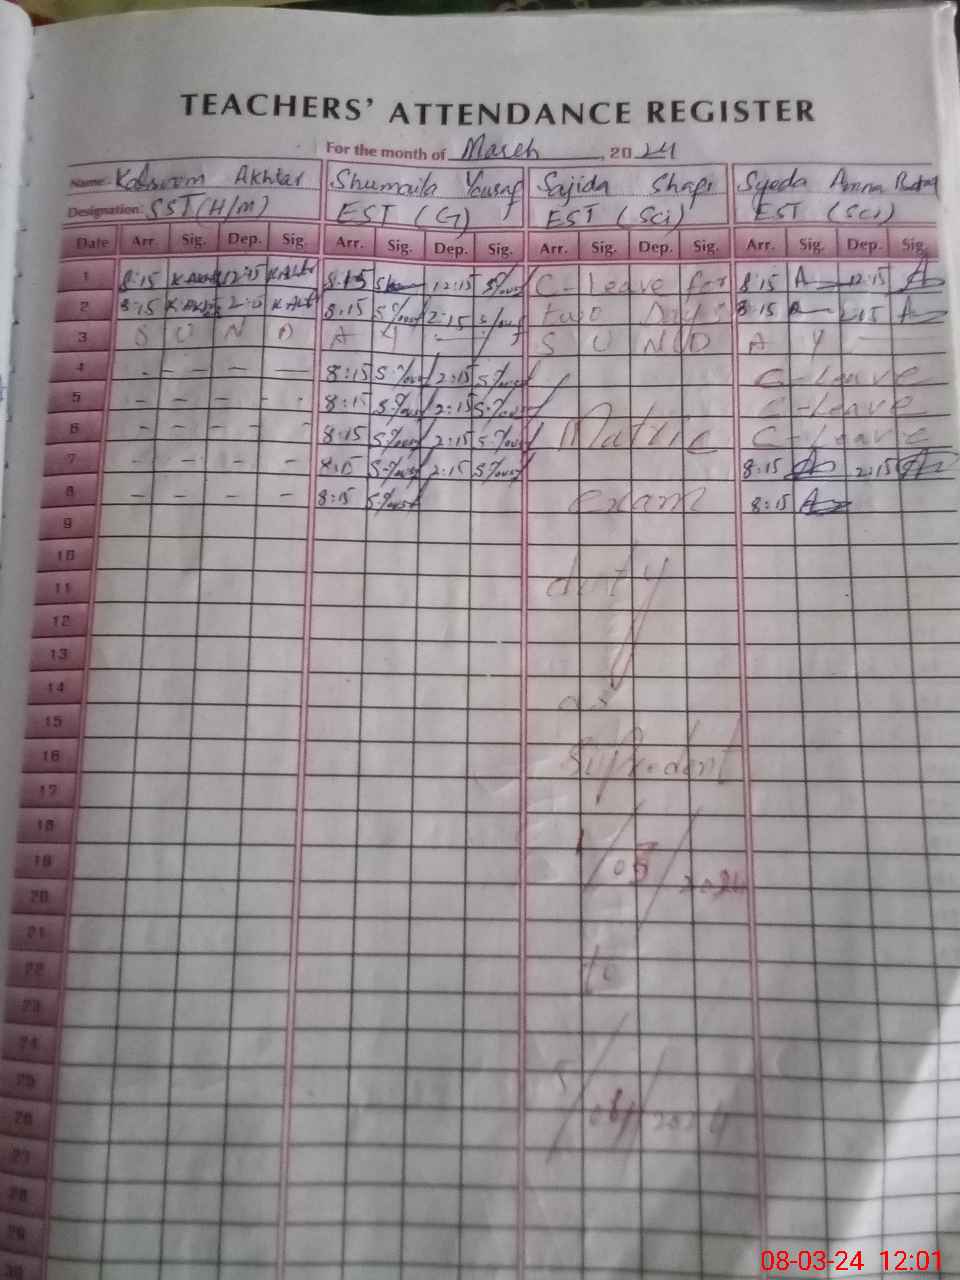 TEACHERS' ATTENDANCE REGISTER
For the month of March, 2024
Name: Kalsoom Akhtar Shumaila Yousaf Sajida Shafi Syeda Amna
Designation: SST (H/M) EST (G) EST (Sci) EST (Sci)
Date Arr. Sig. Dep. Sig. Arr. Sig. Dep. Sig. Arr. Sig. Dep. Sig. Arr. Sig. Dep. Sig.
1 8:15 12:15 8:15 12:15 C-Leave for 8:15 12:15
2 8:15 2:15 8:15 2:15 two Days 8:15 2:15
3 S U N D A Y S U N D A Y
4 - - - - 8:15 2:15 C-Leave
5 - - - - 8:15 2:15 C-Leave
6 - - - - 8:15 2:15 Matric C-Leave
7 - - - - 8:15 2:15 8:15 2:15
8 - - - - 8:15 exam 8:15
9
10
11 duty
12
13
14 as
15
16
17
18
19 1/03/2024
20
21
22 to
23
24
25
26 /04/2024
27
28
29
30
08-03-24 12:01